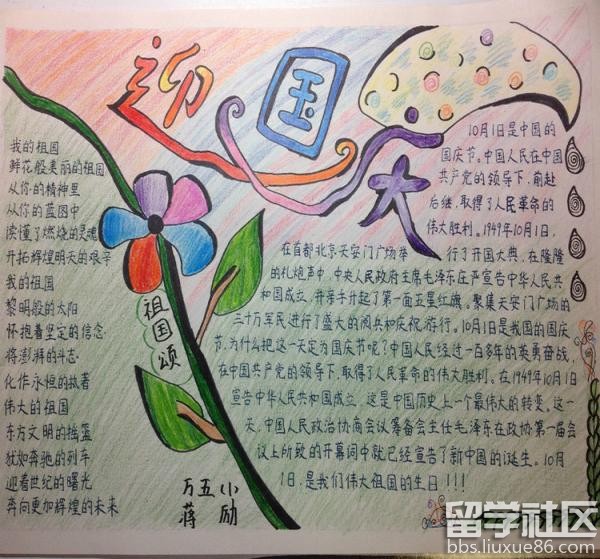 迎国庆
我的祖国
鲜花般美丽的祖国
从你的精神里
从你的蓝图中
读懂了燃烧的灵魂
开拓辉煌明天的艰辛
我的祖国
黎明般的太阳
怀抱着坚定的信念
将澎湃的斗志
化作永恒的执著
伟大的祖国
东方文明的摇篮
犹如奔驰的列车
迎着世纪的曙光
奔向更加辉煌的未来
祖国颂
10月1日是中国的
国庆节。中国人民在中国
共产党的领导下,前赴
后继,取得了人民革命的
伟大胜利。1949年10月1日,
在首都北京天安门广场举行了开国大典,在隆隆
的礼炮声中,中央人民政府主席毛泽东庄严宣告中华人民共
和国成立,并亲手升起了第一面五星红旗。聚集天安门广场的
三十万军民进行了盛大的阅兵和庆祝游行。10月1日是我国的国庆
节,为什么把这一天定为国庆节呢?中国人民经过一百多年的英勇奋战,
在中国共产党的领导下,取得了人民革命的伟大胜利。在1949年10月1日
宣告中华人民共和国成立,这是中国历史上一个最伟大的转变。这一
天,中国人民政治协商会议筹备会主任毛泽东在政协第一届会
议上所致的开幕词中就已经宣告了新中国的诞生。10月
1日,是我们伟大祖国的生日!!!
万五小
蒋励
留学社区
bbs.liuxue86.com